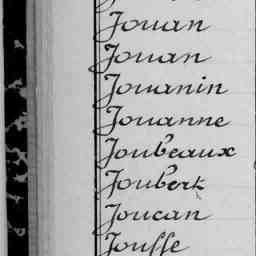 Jouan
Jouan
Jouanin
Jouanne
Joubeaux
Joubert
Joucan
Jouffe